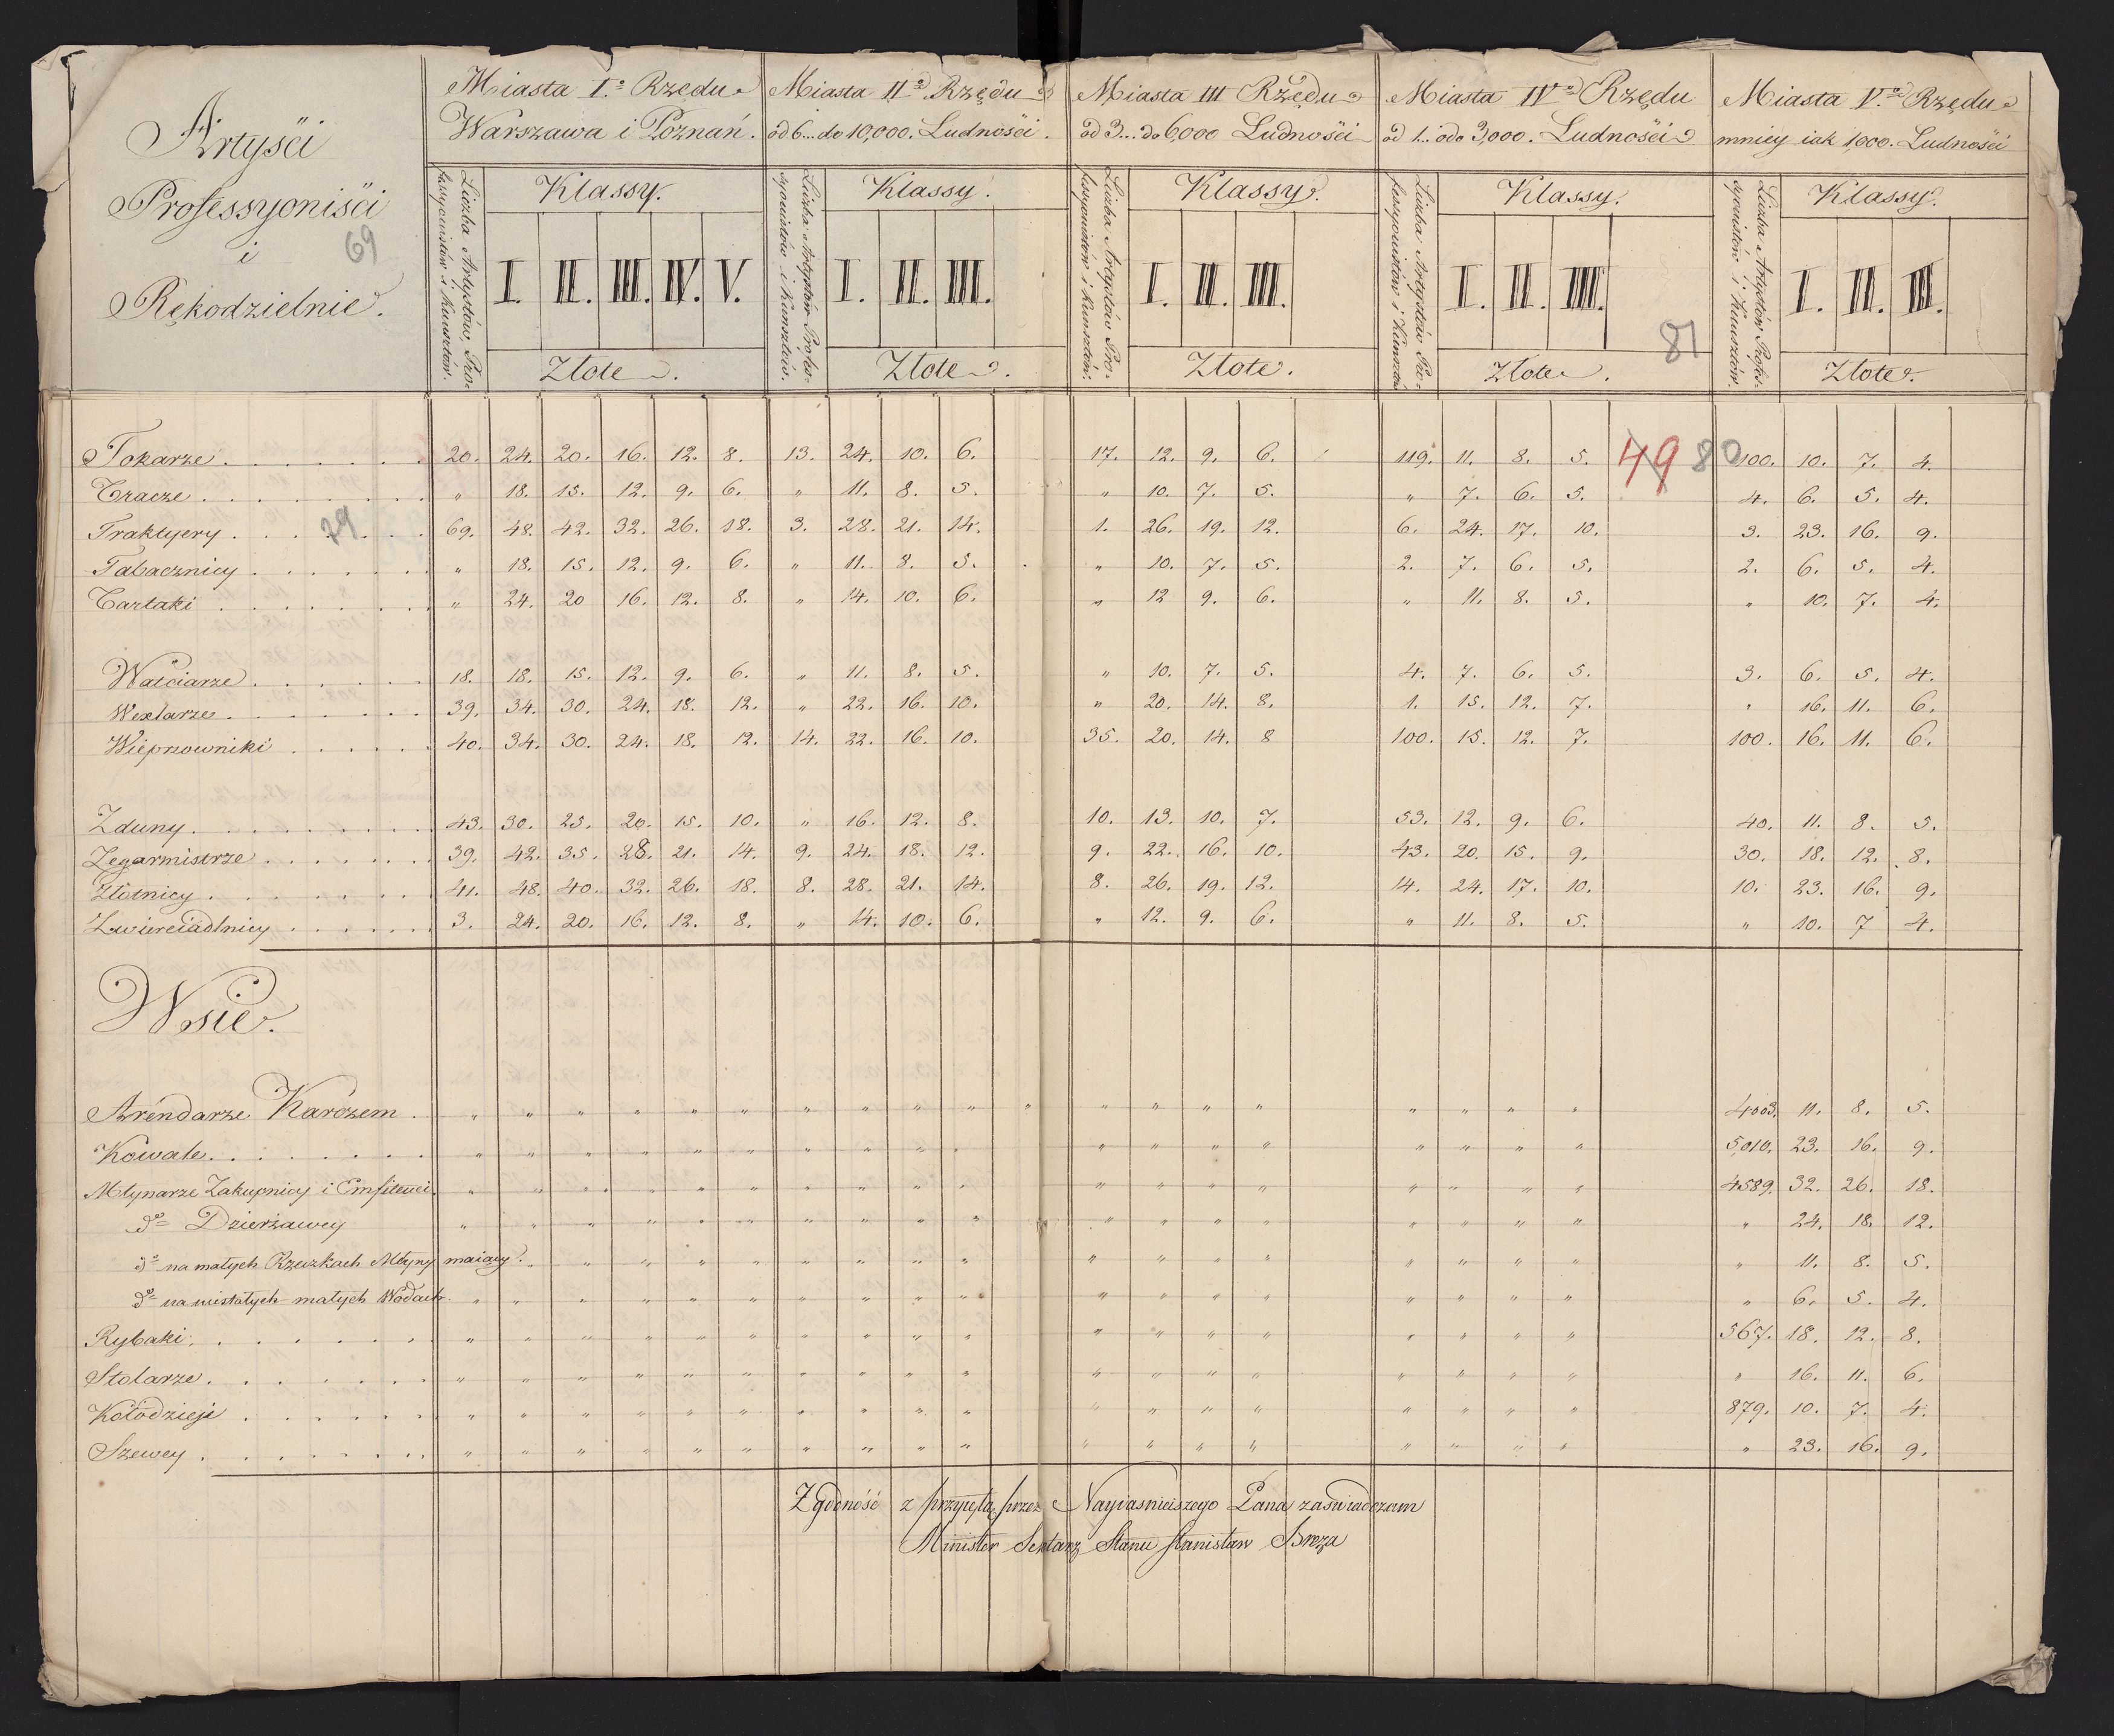 Artyści
Professyoniści
i
Rękodzielnie.
69
Miasta I.º Rzędu
Warszawa i Poznań.
Miasta IIº Rzędu
od 6... do 10,000. Ludności.
Miasta III Rzędu
od 3... do 6,000 Ludności
Miasta IVº Rzędu
od 1... do 3,000. Ludności
Miasta V.º Rzędu
mniey iak 1,000. Ludności
Liczba Artystów, Professyonistów i Kunsztów. Klassy. Liczba Artystów Professyonistów i Kunsztów. Klassy. Liczba Artystów Professyonistów i Kunsztów. Klassy. Liczba Artystów Professyonistów i Kunsztów Klassy. Liczba Artystów Professyonistów i Kunsztów. Klassy.
I. II. III. IV. V. I. II. III. I. II. III. I. II. III. I. II. III.
81
Złote. Złote. Złote. Złote. Złote.
Tokarze 20. 24. 20. 16. 12. 8. 13. 24. 10. 6. 17. 12. 9. 6. 119. 11. 8. 5. 49 80 100. 10. 7. 4.
Tracze " 18. 15. 12. 9. 6. " 11. 8. 5. " 10. 7. 5. " 7. 6. 5. 4. 6. 5. 4.
Traktyery 69. 48. 42. 32. 26. 18. 3. 28. 21. 14. 1. 26. 19. 12. 6. 24. 17. 10. 3. 23. 16. 9.
Tabacznicy " 18. 15. 12. 9. 6. " 11. 8. 5. " 10. 7. 5. 2. 7. 6. 5. 2. 6. 5. 4.
Tartaki " 24. 20 16. 12. 8. " 14. 10. 6. " 12 9. 6. " 11. 8. 5. " 10. 7. 4.
Watciarze 18. 18. 15. 12. 9. 6. " 11. 8. 5. " 10. 7. 5. 4. 7. 6. 5. 3. 6. 5. 4.
Wexlarze 39. 34. 30. 24. 18. 12. " 22. 16. 10. " 20. 14. 8. 1. 15. 12. 7. " 16. 11. 6.
Wiepnowniki 40. 34. 30. 24. 18. 12. 14. 22. 16. 10. 35. 20. 14. 8 100. 15. 12. 7. 100. 16. 11. 6.
Zduny 43. 30. 25. 20. 15. 10. " 16. 12. 8. 10. 13. 10. 7. 53. 12. 9. 6. 40. 11. 8. 5.
Zegarmistrze 39. 42. 35. 28. 21. 14. 9. 24. 18. 12. 9. 22. 16. 10. 43. 20. 15. 9. 30. 18. 12. 8.
Złotnicy 41. 48. 40. 32. 26. 18. 8. 28. 21. 14. 8. 26. 19. 12. 14. 24. 17. 10. 10. 23. 16. 9.
Zwierciadlnicy 3. 24. 20. 16. 12. 8. " 14. 10. 6. " 12. 9. 6. " 11. 8. 5. " 10. 7 4.
Wsie.
Arendarze Karczem 4003. 11. 8. 5.
Kowale 5,010. 23. 16. 9.
Młynarze Zakupnicy i Emfiteuci 4589. 32. 26. 18.
dº Dzierżawcy " 24. 18. 12.
dº na małych Rzeczkach Młyny maiący " 11. 8. 5.
dº na niestałych małych Wodach " 6. 5. 4.
Rybaki 567. 18. 12. 8.
Stolarze " 16. 11. 6.
Kołodzieje 879. 10. 7. 4.
Szewcy " 23. 16. 9.
Zgodność z przyiętą przez Nayiasnieiszego Pana zaświadczam
Minister Sekretarz Stanu Stanisław Breza